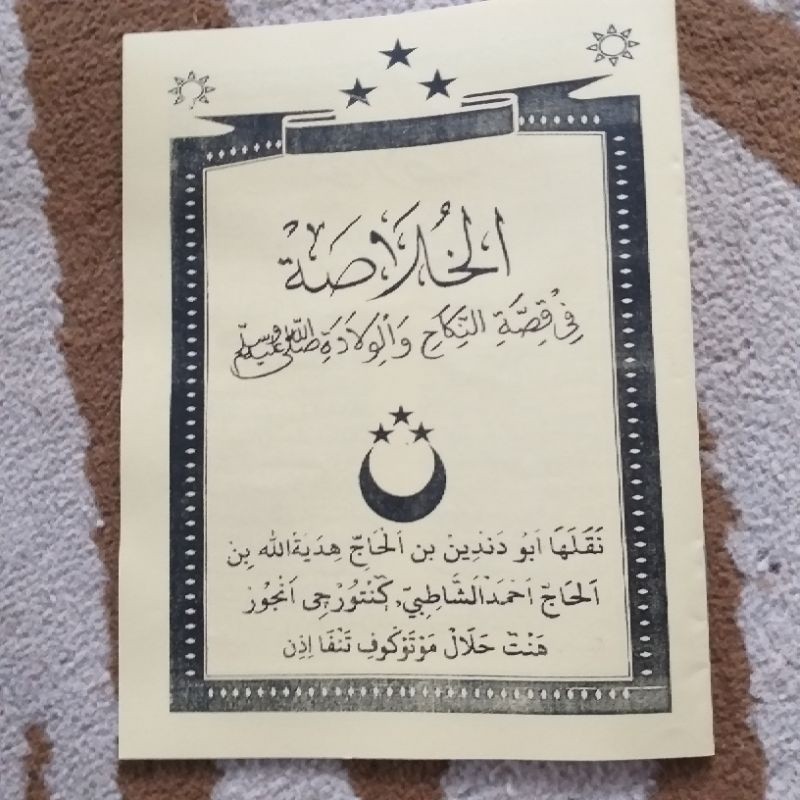 الخُلَاصَةْ
فِى قِصَّةِ النِّكَاحِ وَالْوِلَادَةِ صَلَّى اللّٰه عَلَيْهِ وَسَلَّمْ
نَقَلَهَا اَبُو دَنْدِينْ بن اَلْحَاجّ هِدَيَةْ الله بِنْ
اَلْحَاجّ اَحْمَدْ الشَّاطِبِيّ، كَنْتُورْ جِى اَنْجُوْر
هَنْتْ حَلَالْ مَوْتَوْكَوفِ تَنْفَا اِذِن